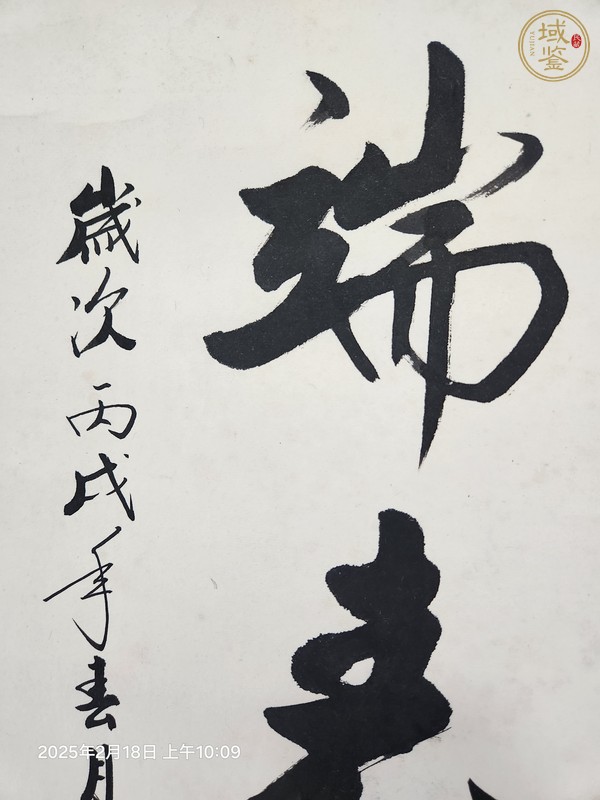 域鉴
YUJIAN
端
歲次丙戌年春月
2025年2月18日 上午10:09